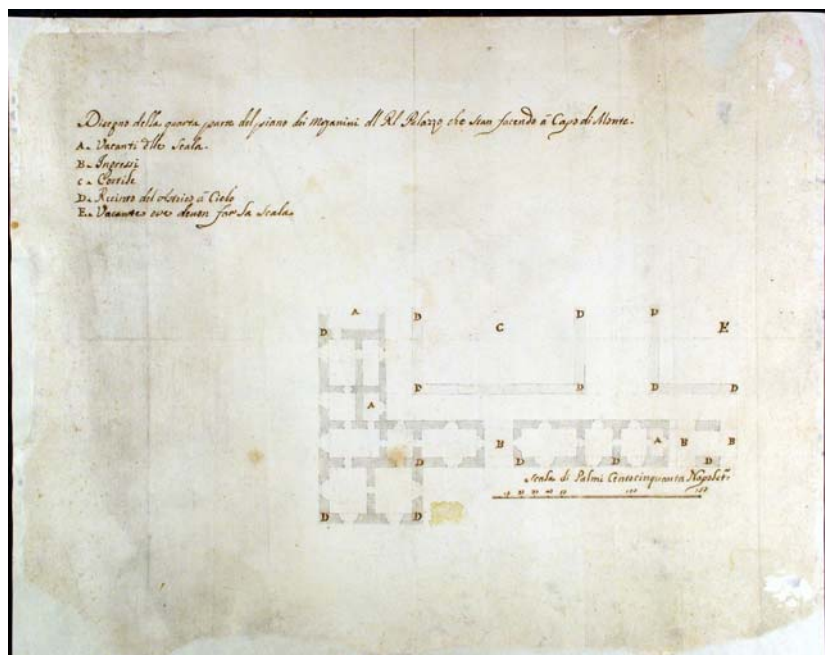 Disegno della quarta parte del piano dei Mezanini dll Rl Palazzo che stan facendo à Capo di Monte.
A. Vacanti dlle Scala.
B. Ingressi
C. Cortile
D. Recinto del Astrico à Cielo
E. Vacante ove devon far la Scala
A
D
D
D
D
C
E
D
D
D
D
A
B
A
B
B
D
D
D
D
Scala di Palmi Centocinquanta Napolet.
10 20 30 40 50 100 150
D
D